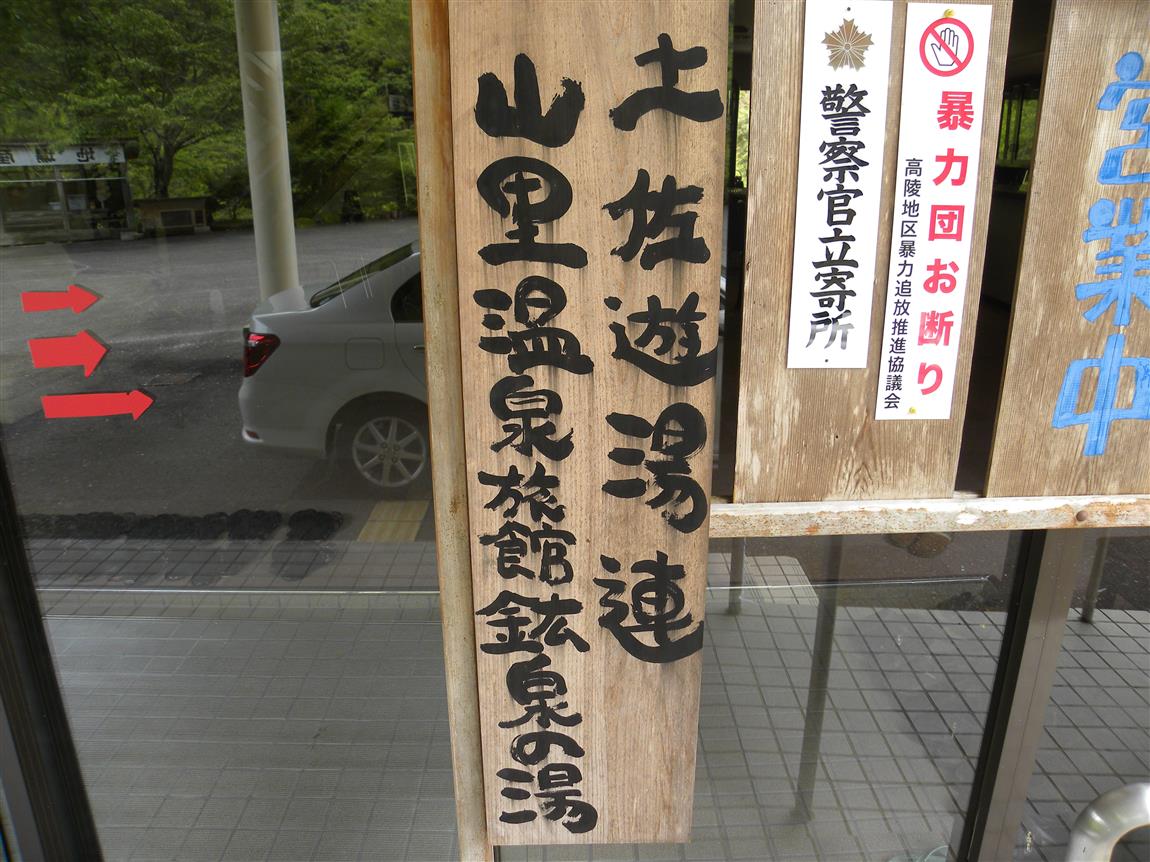 営業中
暴力団お断り
高陵地区暴力追放推進協議会
警察官立寄所
土佐遊湯連
山里温泉旅館鉱泉の湯